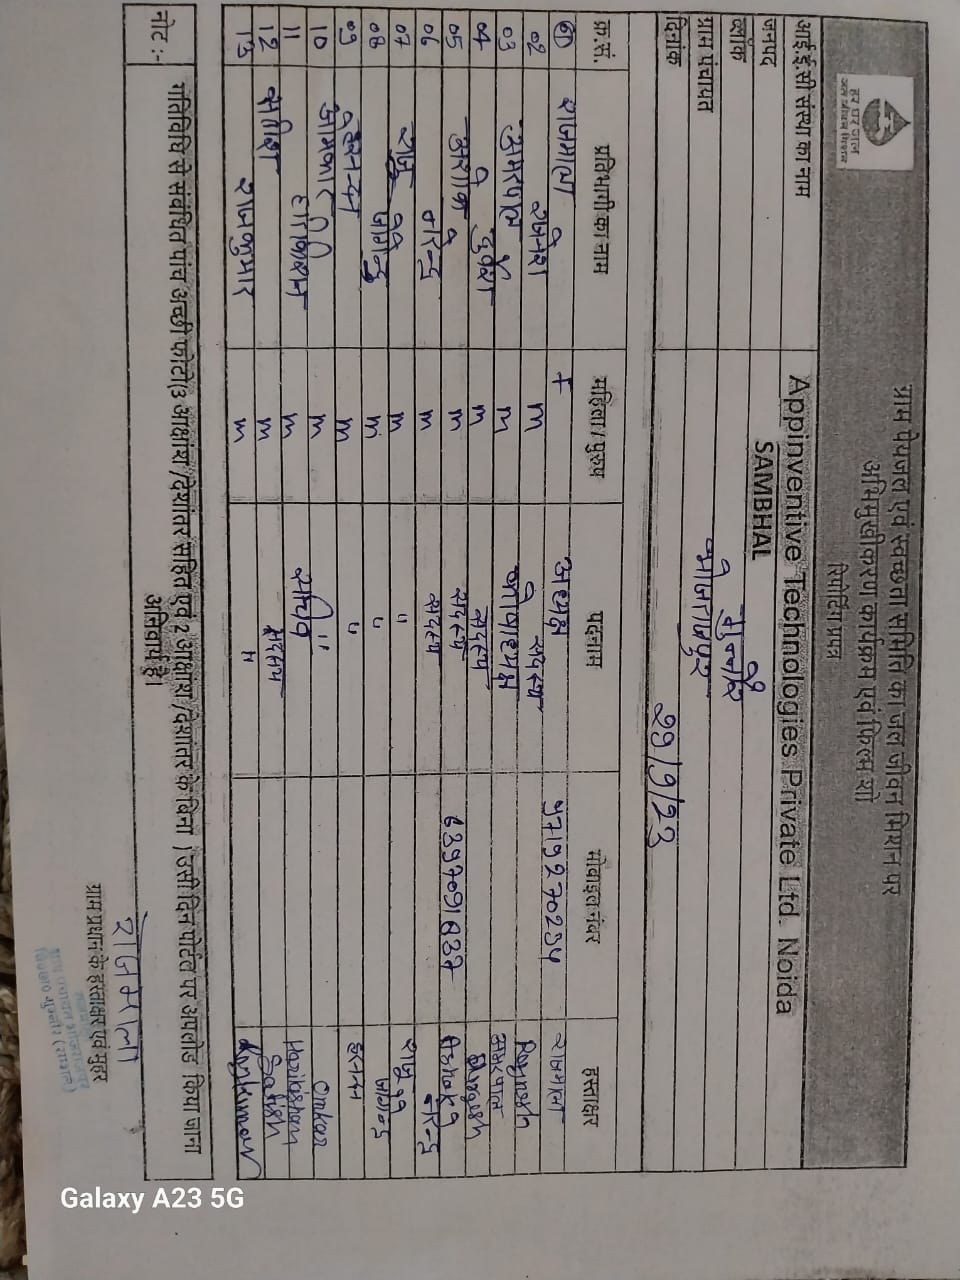 ग्राम पेयजल एवं स्वच्छता समिति का जल जीवन मिशन पर
अभिमुखीकरण कार्यक्रम एवं फिल्म शो
रिपोर्टिंग प्रपत्र
हर घर जल
जल जीवन मिशन
आई.ई.सी संस्था का नाम Appinventive Technologies Private Ltd. Noida
जनपद SAMBHAL
ब्लॉक
ग्राम पंचायत
दिनांक 29/9/23
क्र.सं. प्रतिभागी का नाम महिला / पुरुष पदनाम मोबाइल नंबर हस्ताक्षर
01 राजमाला F अध्यक्ष राजमाला
02 रजनेश m सदस्य Rajnesh
03 m कोषाध्यक्ष
04 दुर्गेश m सदस्य Durgesh
05 अशोक m सदस्य 6397091637 Ashok
06 नरेन्द्र m सदस्य नरेन्द्र
07 राजू m " राजू
08 m "
09 m "
10 ओमकार m " Omkar
11 हरिकिशन m सचिव Harikishan
12 m सदस्य Satish
13 राजकुमार m " Rajkumar
नोट :- गतिविधि से संबंधित पांच अच्छी फोटो(3 आक्षांश/देशांतर सहित एवं 2 आक्षांश/देशांतर के बिना) उसी दिन पोर्टल पर अपलोड किया जाना
अनिवार्य है।
राजमाला
ग्राम प्रधान के हस्ताक्षर एवं मुहर
Galaxy A23 5G